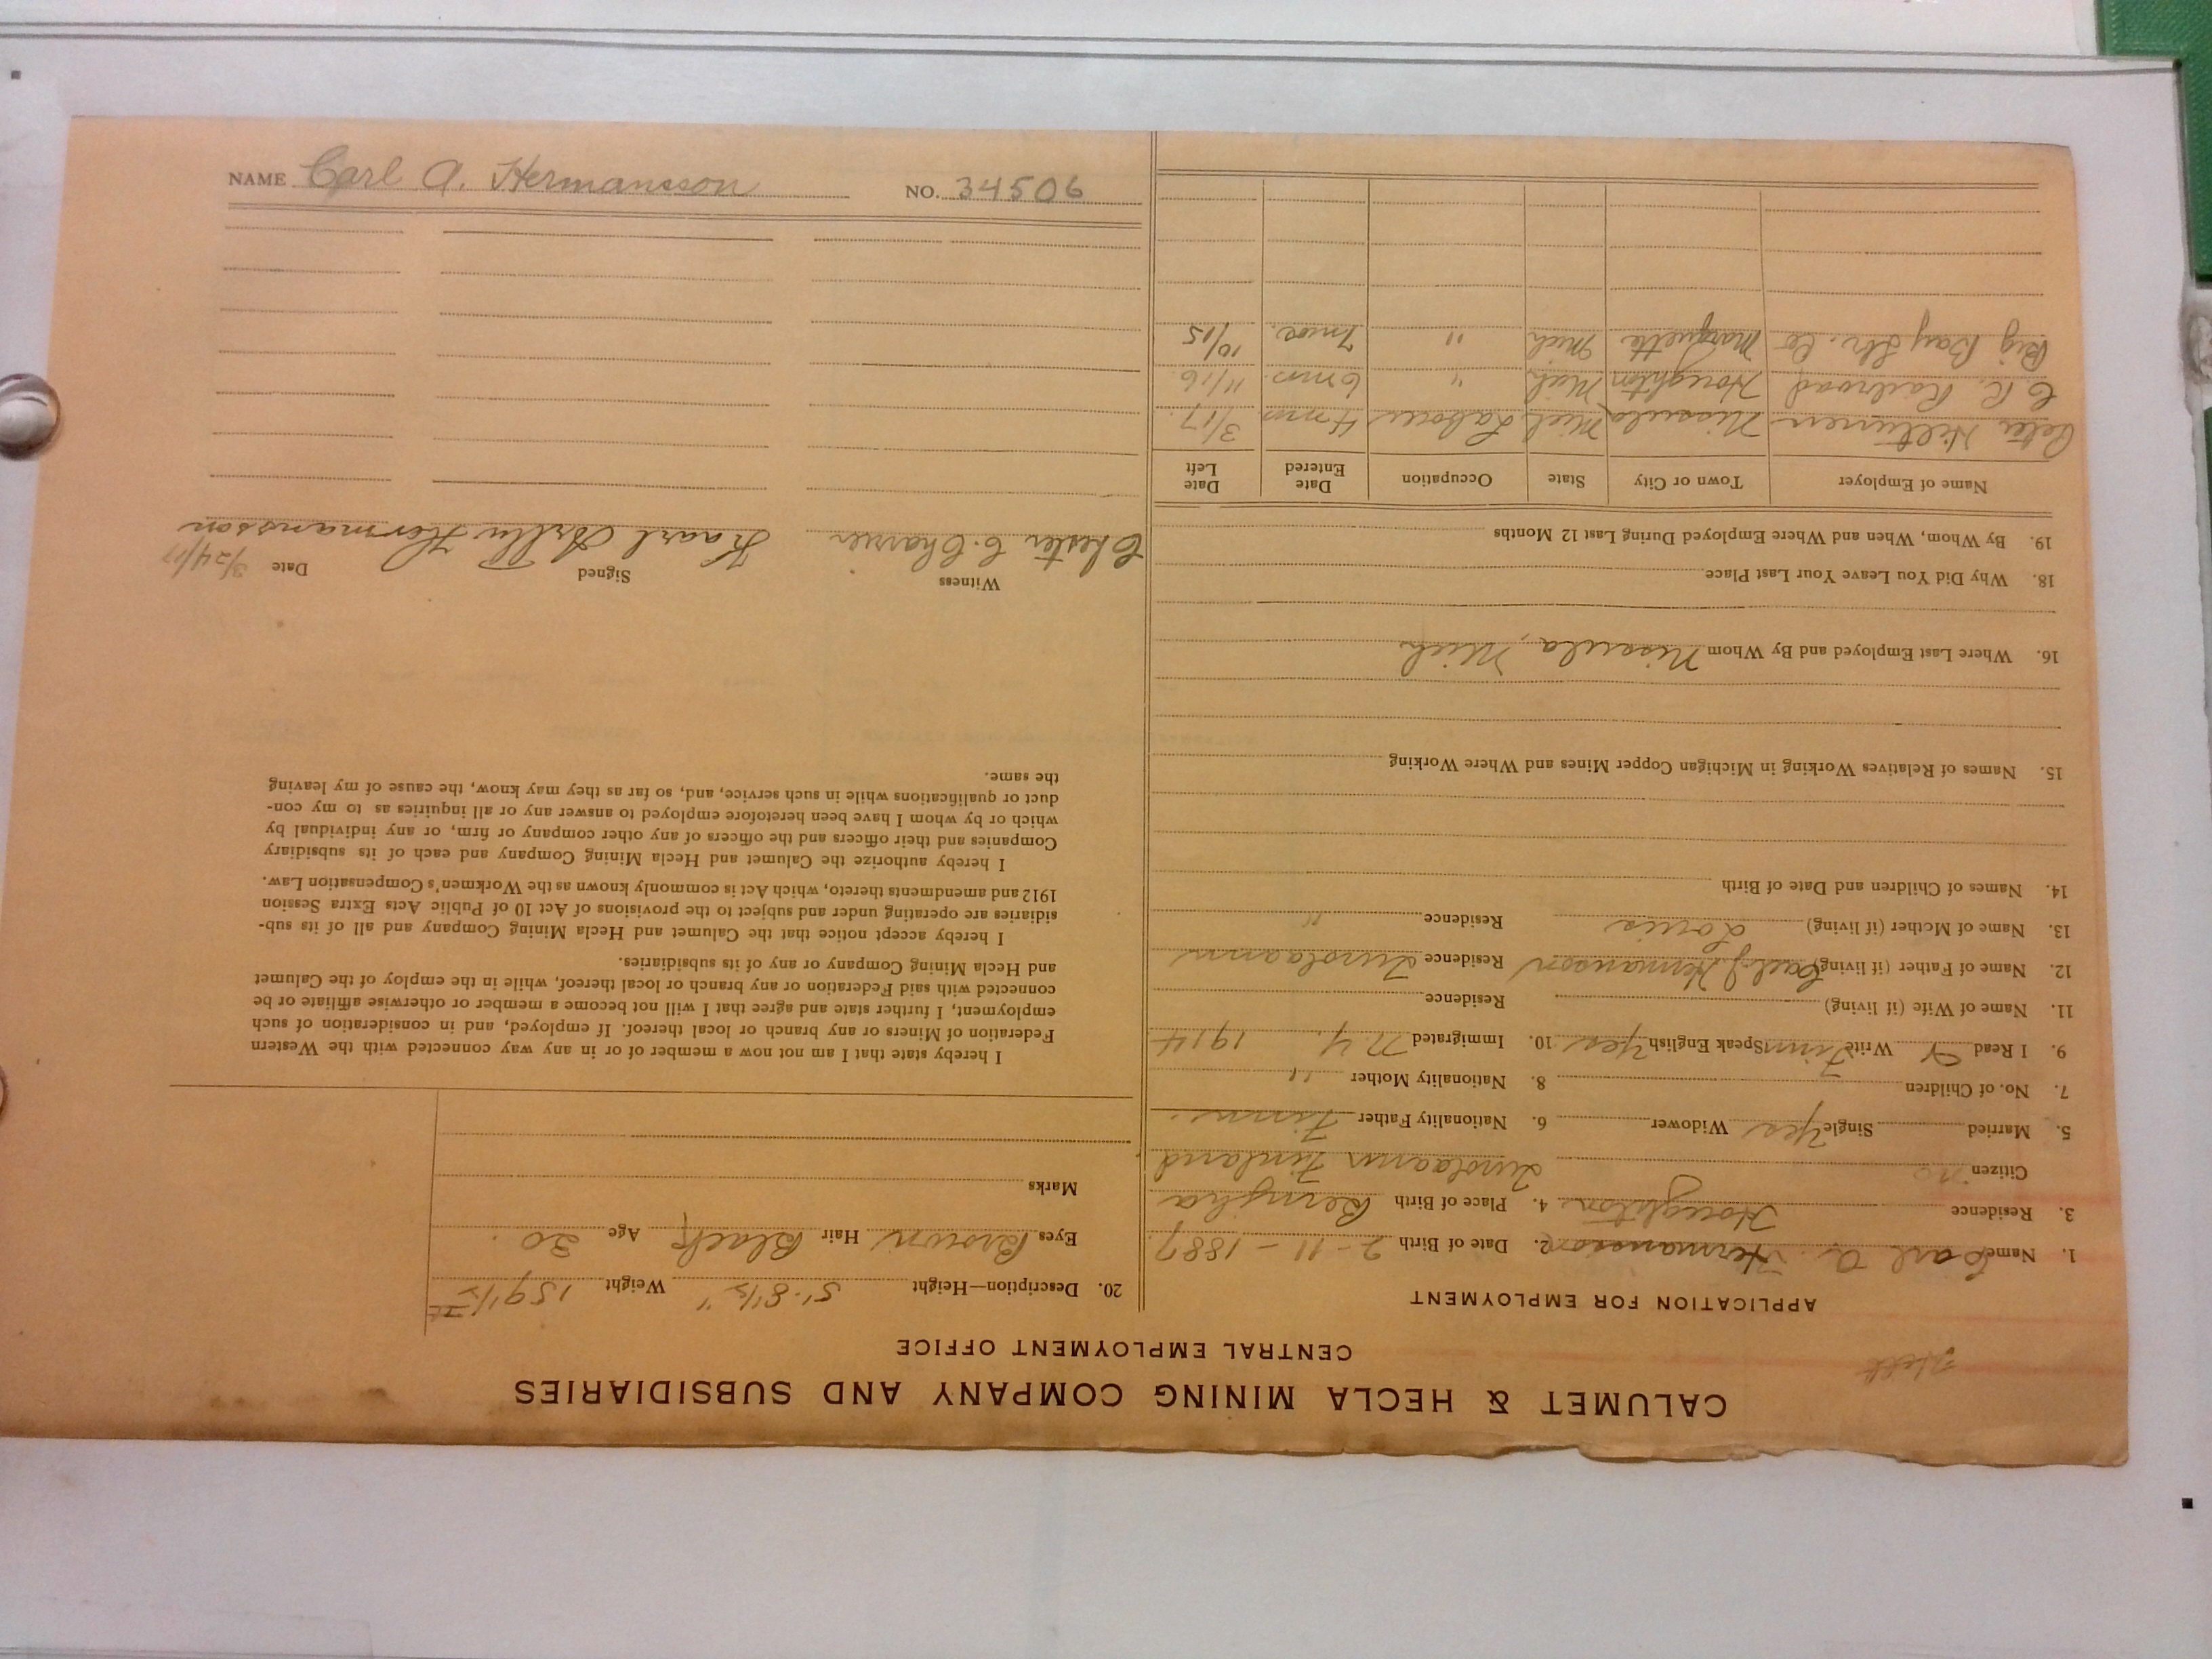 NAME Carl A. Hermansson NO. 34506
CALUMET & HECLA MINING COMPANY AND SUBSIDIARIES
CENTRAL EMPLOYMENT OFFICE
APPLICATION FOR EMPLOYMENT
1. Name Carl A. Hermansson 2. Date of Birth 2-11-1887
3. Residence Houghton 4. Place of Birth
Citizen no Finland
5. Married Single Yes Widower 6. Nationality Father Finn.
7. No. of Children 8. Nationality Mother "
9. I Read Write Finn Speak English Yes 10. Immigrated N.Y. 1914
11. Name of Wife (if living) Residence
12. Name of Father (if living) Hermanson Residence
13. Name of Mother (if living) Lovis Residence "
14. Names of Children and Date of Birth
15. Names of Relatives Working in Michigan Copper Mines and Where Working
16. Where Last Employed and By Whom Nisula, Mich.
18. Why Did You Leave Your Last Place
19. By Whom, When and Where Employed During Last 12 Months
Name of Employer Town or City State Occupation Date Entered Date Left
Peter Hiltunen Nisula Mich Laborer 4 mos 3/17
C. R. Railroad Houghton Mich " 6 mos. 11/16
Big Bay Lbr. Co Marquette Mich " 7 mos. 10/15
20. Description—Height 5'-8 1/2" Weight 159 1/2
Eyes Brown Hair Black Age 30.
Marks
I hereby state that I am not now a member of or in any way connected with the Western
Federation of Miners or any branch or local thereof. If employed, and in consideration of such
employment, I further state and agree that I will not become a member or otherwise affiliate or be
connected with said Federation or any branch or local thereof, while in the employ of the Calumet
and Hecla Mining Company or any of its subsidiaries.
I hereby accept notice that the Calumet and Hecla Mining Company and all of its sub-
sidiaries are operating under and subject to the provisions of Act 10 of Public Acts Extra Session
1912 and amendments thereto, which Act is commonly known as the Workmen's Compensation Law.
I hereby authorize the Calumet and Hecla Mining Company and each of its subsidiary
Companies and their officers and the officers of any other company or firm, or any individual by
which or by whom I have been heretofore employed to answer any or all inquiries as to my con-
duct or qualifications while in such service, and, so far as they may know, the cause of my leaving
the same.
Witness Signed Date 3/24/17
Chester C. Kaarl Hermansson